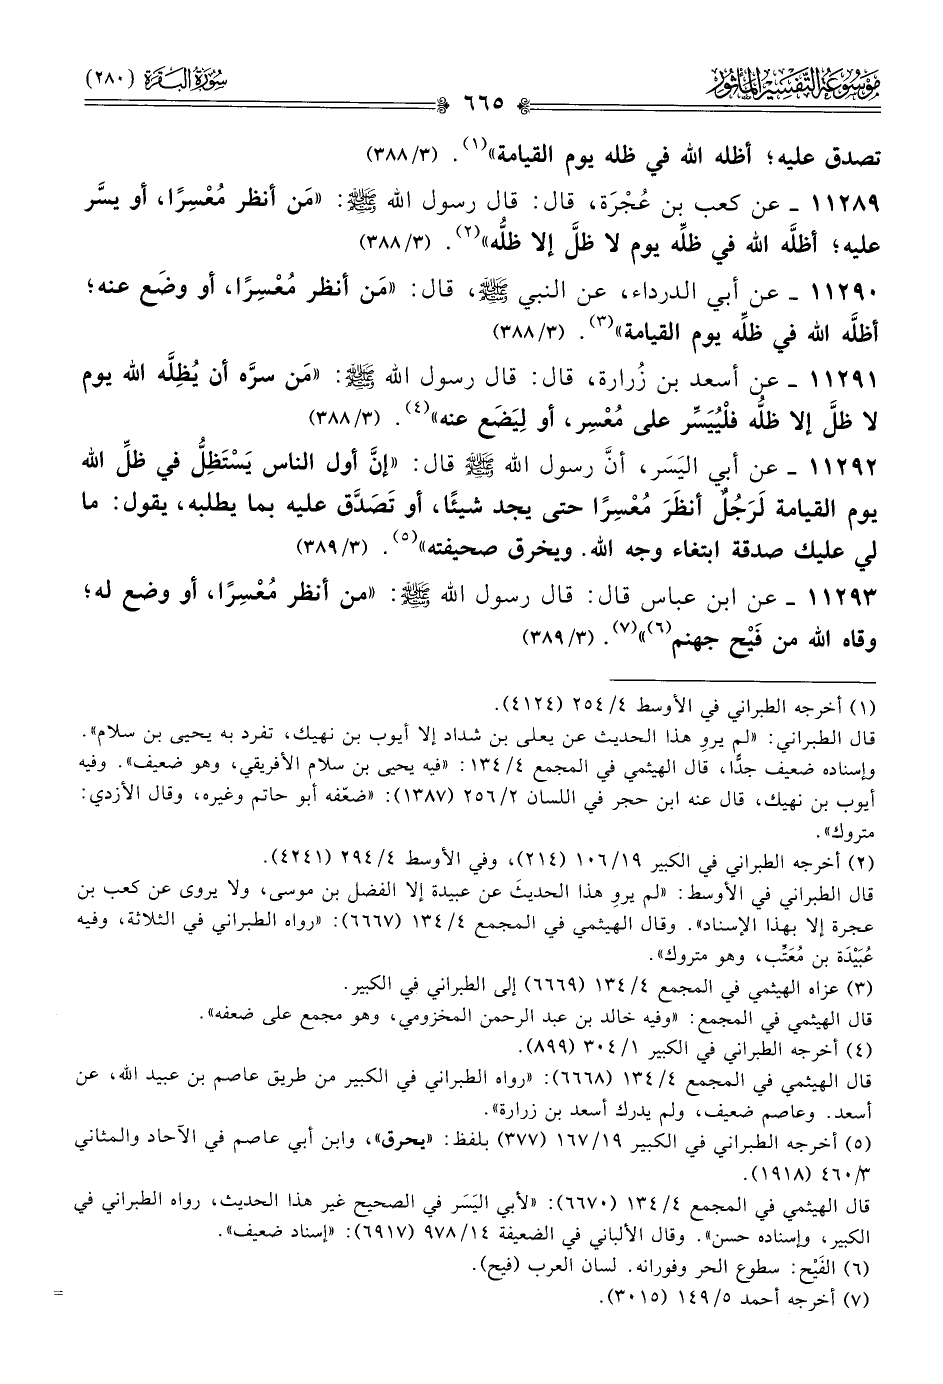 موسوعة التفسير المأثور
٦٦٥
سورة البقرة (٢٨٠)
تصدق عليه؛ أظله الله في ظله يوم القيامة»(١). (٣٨٨/٣)
١١٢٨٩ ـ عن كعب بن عُجْرَة، قال: قال رسول الله ﷺ: «مَن أنظر مُعْسِرًا، أو يسَّر
عليه؛ أظلَّه الله في ظلِّه يوم لا ظلَّ إلا ظلُّه»(٢). (٣٨٨/٣)
١١٢٩٠ ـ عن أبي الدرداء، عن النبي ﷺ، قال: «مَن أنظر مُعْسِرًا، أو وضَع عنه؛
أظلَّه الله في ظلِّه يوم القيامة»(٣). (٣٨٨/٣)
١١٢٩١ ـ عن أسعد بن زُرارة، قال: قال رسول الله ﷺ: «مَن سرَّه أن يُظِلَّه الله يوم
لا ظلَّ إلا ظلُّه فلْيُيَسِّر على مُعْسِر، أو لِيَضَع عنه»(٤). (٣٨٨/٣)
١١٢٩٢ ـ عن أبي اليَسَر، أنَّ رسول الله ﷺ قال: «إنَّ أول الناس يَسْتَظِلُّ في ظلِّ الله
يوم القيامة لَرَجُلٌ أنظَرَ مُعْسِرًا حتى يجد شيئًا، أو تَصَدَّق عليه بما يطلبه، يقول: ما
لي عليك صدقة ابتغاء وجه الله. ويخرق صحيفته»(٥). (٣٨٩/٣)
١١٢٩٣ ـ عن ابن عباس قال: قال رسول الله ﷺ: «من أنظر مُعْسِرًا، أو وضع له؛
وقاه الله من فَيْح جهنم(٦)»(٧). (٣٨٩/٣)
(١) أخرجه الطبراني في الأوسط ٢٥٤/٤ (٤١٢٤).
قال الطبراني: «لم يروِ هذا الحديث عن يعلى بن شداد إلا أيوب بن نهيك، تفرد به يحيى بن سلام».
وإسناده ضعيف جدًّا، قال الهيثمي في المجمع ١٣٤/٤: «فيه يحيى بن سلام الأفريقي، وهو ضعيف». وفيه
أيوب بن نهيك، قال عنه ابن حجر في اللسان ٢٥٦/٢ (١٣٨٧): «ضعّفه أبو حاتم وغيره، وقال الأزدي:
متروك».
(٢) أخرجه الطبراني في الكبير ١٠٦/١٩ (٢١٤)، وفي الأوسط ٢٩٤/٤ (٤٢٤١).
قال الطبراني في الأوسط: «لم يروِ هذا الحديثَ عن عبيدة إلا الفضل بن موسى، ولا يروى عن كعب بن
عجرة إلا بهذا الإسناد». وقال الهيثمي في المجمع ١٣٤/٤ (٦٦٦٧): «رواه الطبراني في الثلاثة، وفيه
عُبَيْدَة بن مُعَتِّب، وهو متروك».
(٣) عزاه الهيثمي في المجمع ١٣٤/٤ (٦٦٦٩) إلى الطبراني في الكبير.
قال الهيثمي في المجمع: «وفيه خالد بن عبد الرحمن المخزومي، وهو مجمع على ضعفه».
(٤) أخرجه الطبراني في الكبير ٣٠٤/١ (٨٩٩).
قال الهيثمي في المجمع ١٣٤/٤ (٦٦٦٨): «رواه الطبراني في الكبير من طريق عاصم بن عبيد الله، عن
أسعد. وعاصم ضعيف، ولم يدرك أسعد بن زرارة».
(٥) أخرجه الطبراني في الكبير ١٦٧/١٩ (٣٧٧) بلفظ: «يحرق»، وابن أبي عاصم في الآحاد والمثاني
٤٦٠/٣ (١٩١٨).
قال الهيثمي في المجمع ١٣٤/٤ (٦٦٧٠): «لأبي اليَسَر في الصحيح غير هذا الحديث، رواه الطبراني في
الكبير، وإسناده حسن». وقال الألباني في الضعيفة ٩٧٨/١٤ (٦٩١٧): «إسناد ضعيف».
(٦) الفَيْح: سطوع الحر وفورانه. لسان العرب (فيح).
(٧) أخرجه أحمد ١٤٩/٥ (٣٠١٥).
=